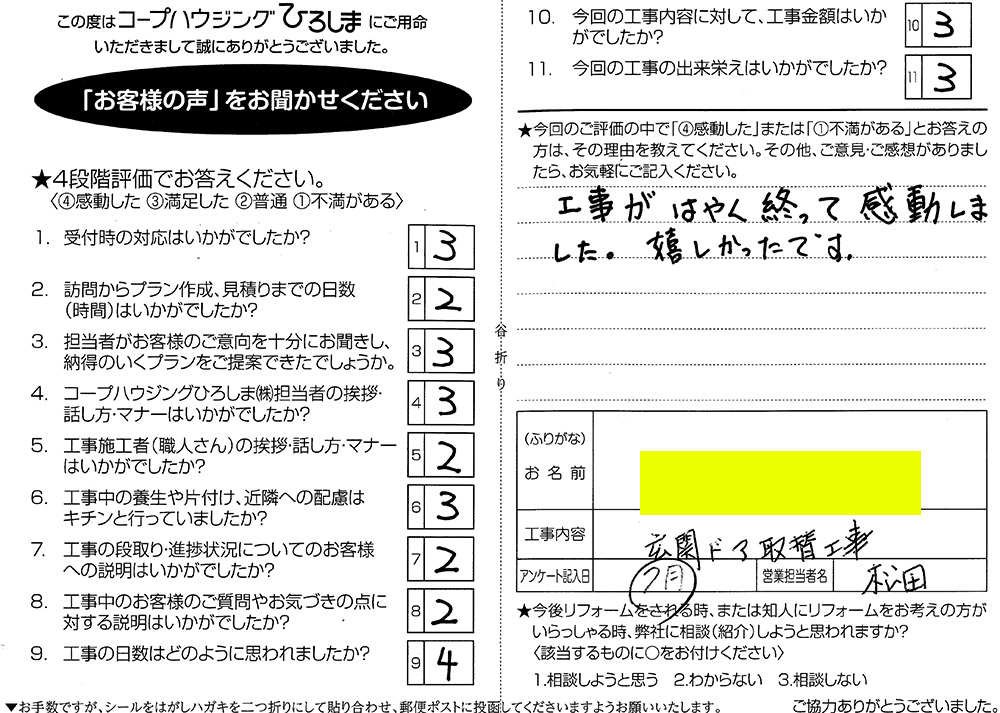 この度はコープハウジングひろしまにご用命
いただきまして誠にありがとうございました。
「お客様の声」をお聞かせください
★4段階評価でお答えください。
〈④感動した ③満足した ②普通 ①不満がある〉
1. 受付時の対応はいかがでしたか？ 1 3
2. 訪問からプラン作成、見積りまでの日数
（時間）はいかがでしたか？ 2 2
3. 担当者がお客様のご意向を十分にお聞きし、
納得のいくプランをご提案できたでしょうか。 3 3
4. コープハウジングひろしま㈱担当者の挨拶・
話し方・マナーはいかがでしたか？ 4 3
5. 工事施工者（職人さん）の挨拶・話し方・マナー
はいかがでしたか？ 5 2
6. 工事中の養生や片付け、近隣への配慮は
キチンと行っていましたか？ 6 3
7. 工事の段取り・進捗状況についてのお客様
への説明はいかがでしたか？ 7 2
8. 工事中のお客様のご質問やお気づきの点に
対する説明はいかがでしたか？ 8 2
9. 工事の日数はどのように思われましたか？ 9 4
▼お手数ですが、シールをはがしハガキを二つ折りにして貼り合わせ、郵便ポストに投函してくださいますようお願いいたします。
谷折り
10. 今回の工事内容に対して、工事金額はいか
がでしたか？ 10 3
11. 今回の工事の出来栄えはいかがでしたか？ 11 3
★今回のご評価の中で「④感動した」または「①不満がある」とお答えの
方は、その理由を教えてください。その他、ご意見・ご感想がありまし
たら、お気軽にご記入ください。
工事が はやく 終って 感動しま
した。 嬉しかったです。
（ふりがな）
お名前
工事内容 玄関ドア取替工事
アンケート記入日 7月 営業担当者名 松田
★今後リフォームをされる時、または知人にリフォームをお考えの方が
いらっしゃる時、弊社に相談（紹介）しようと思われますか？
〈該当するものに○をお付けください〉
1.相談しようと思う 2.わからない 3.相談しない
ご協力ありがとうございました。